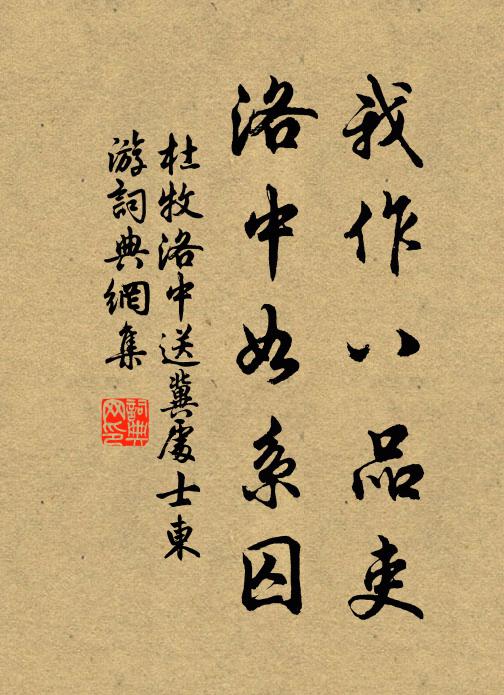 我作八品吏
洛中如系囚
杜牧洛中送冀處士東
游詞典網集
詞典
网印